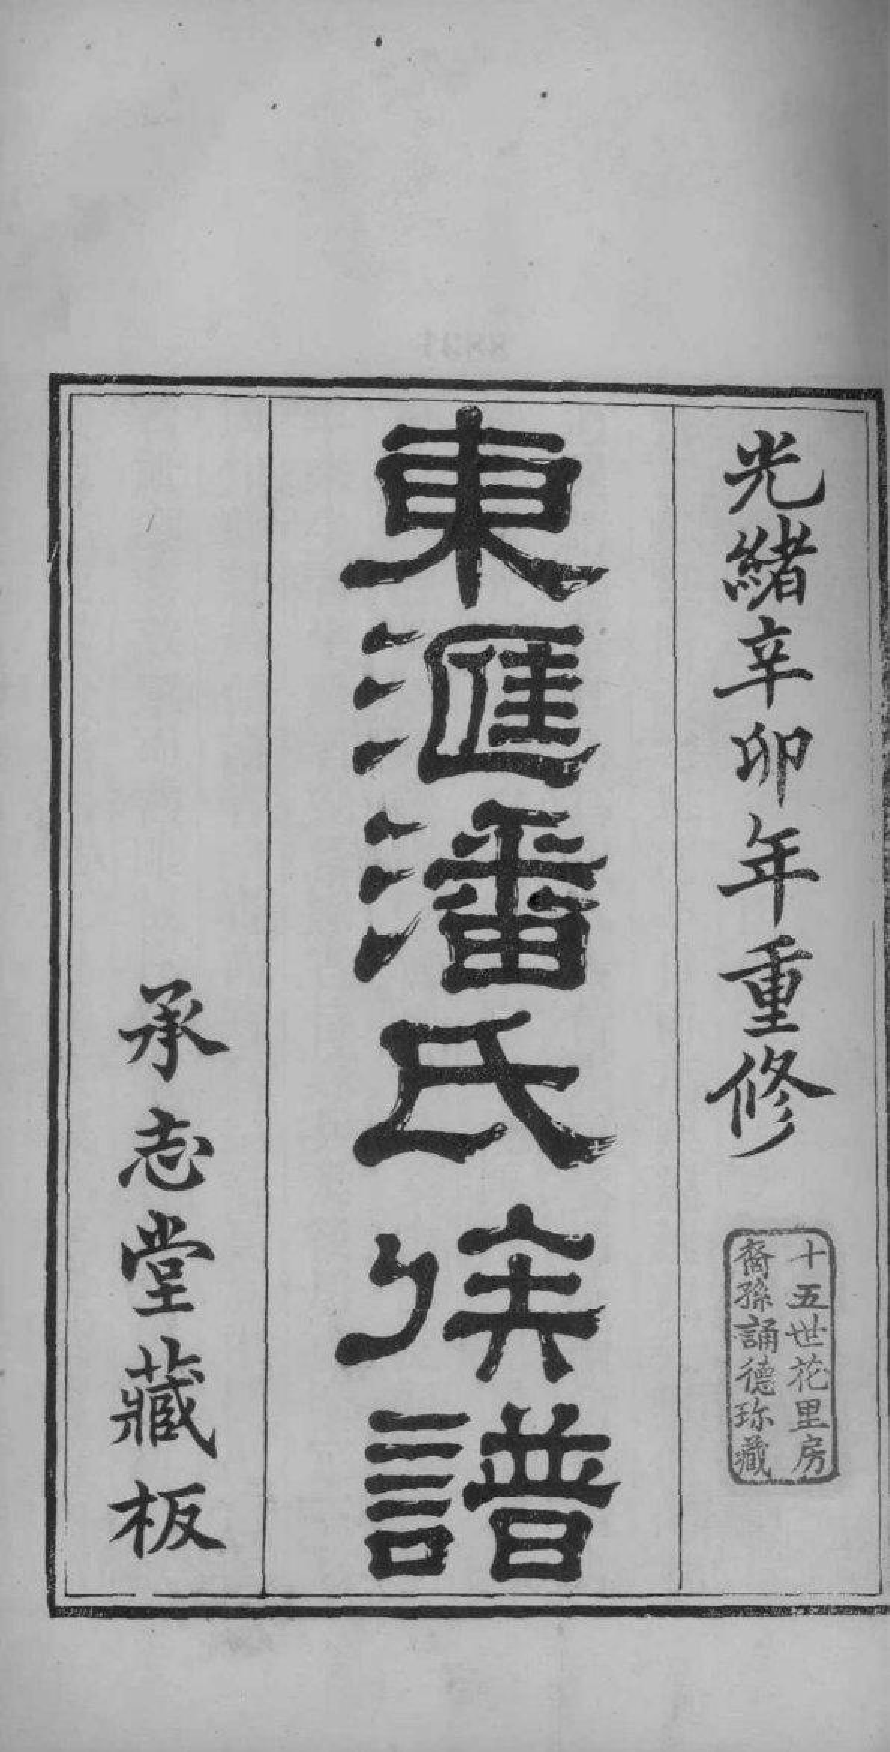 光緒辛卯年重修
十五世花里房
裔孫誦德珎藏
東滙潘氏族譜
承志堂藏板